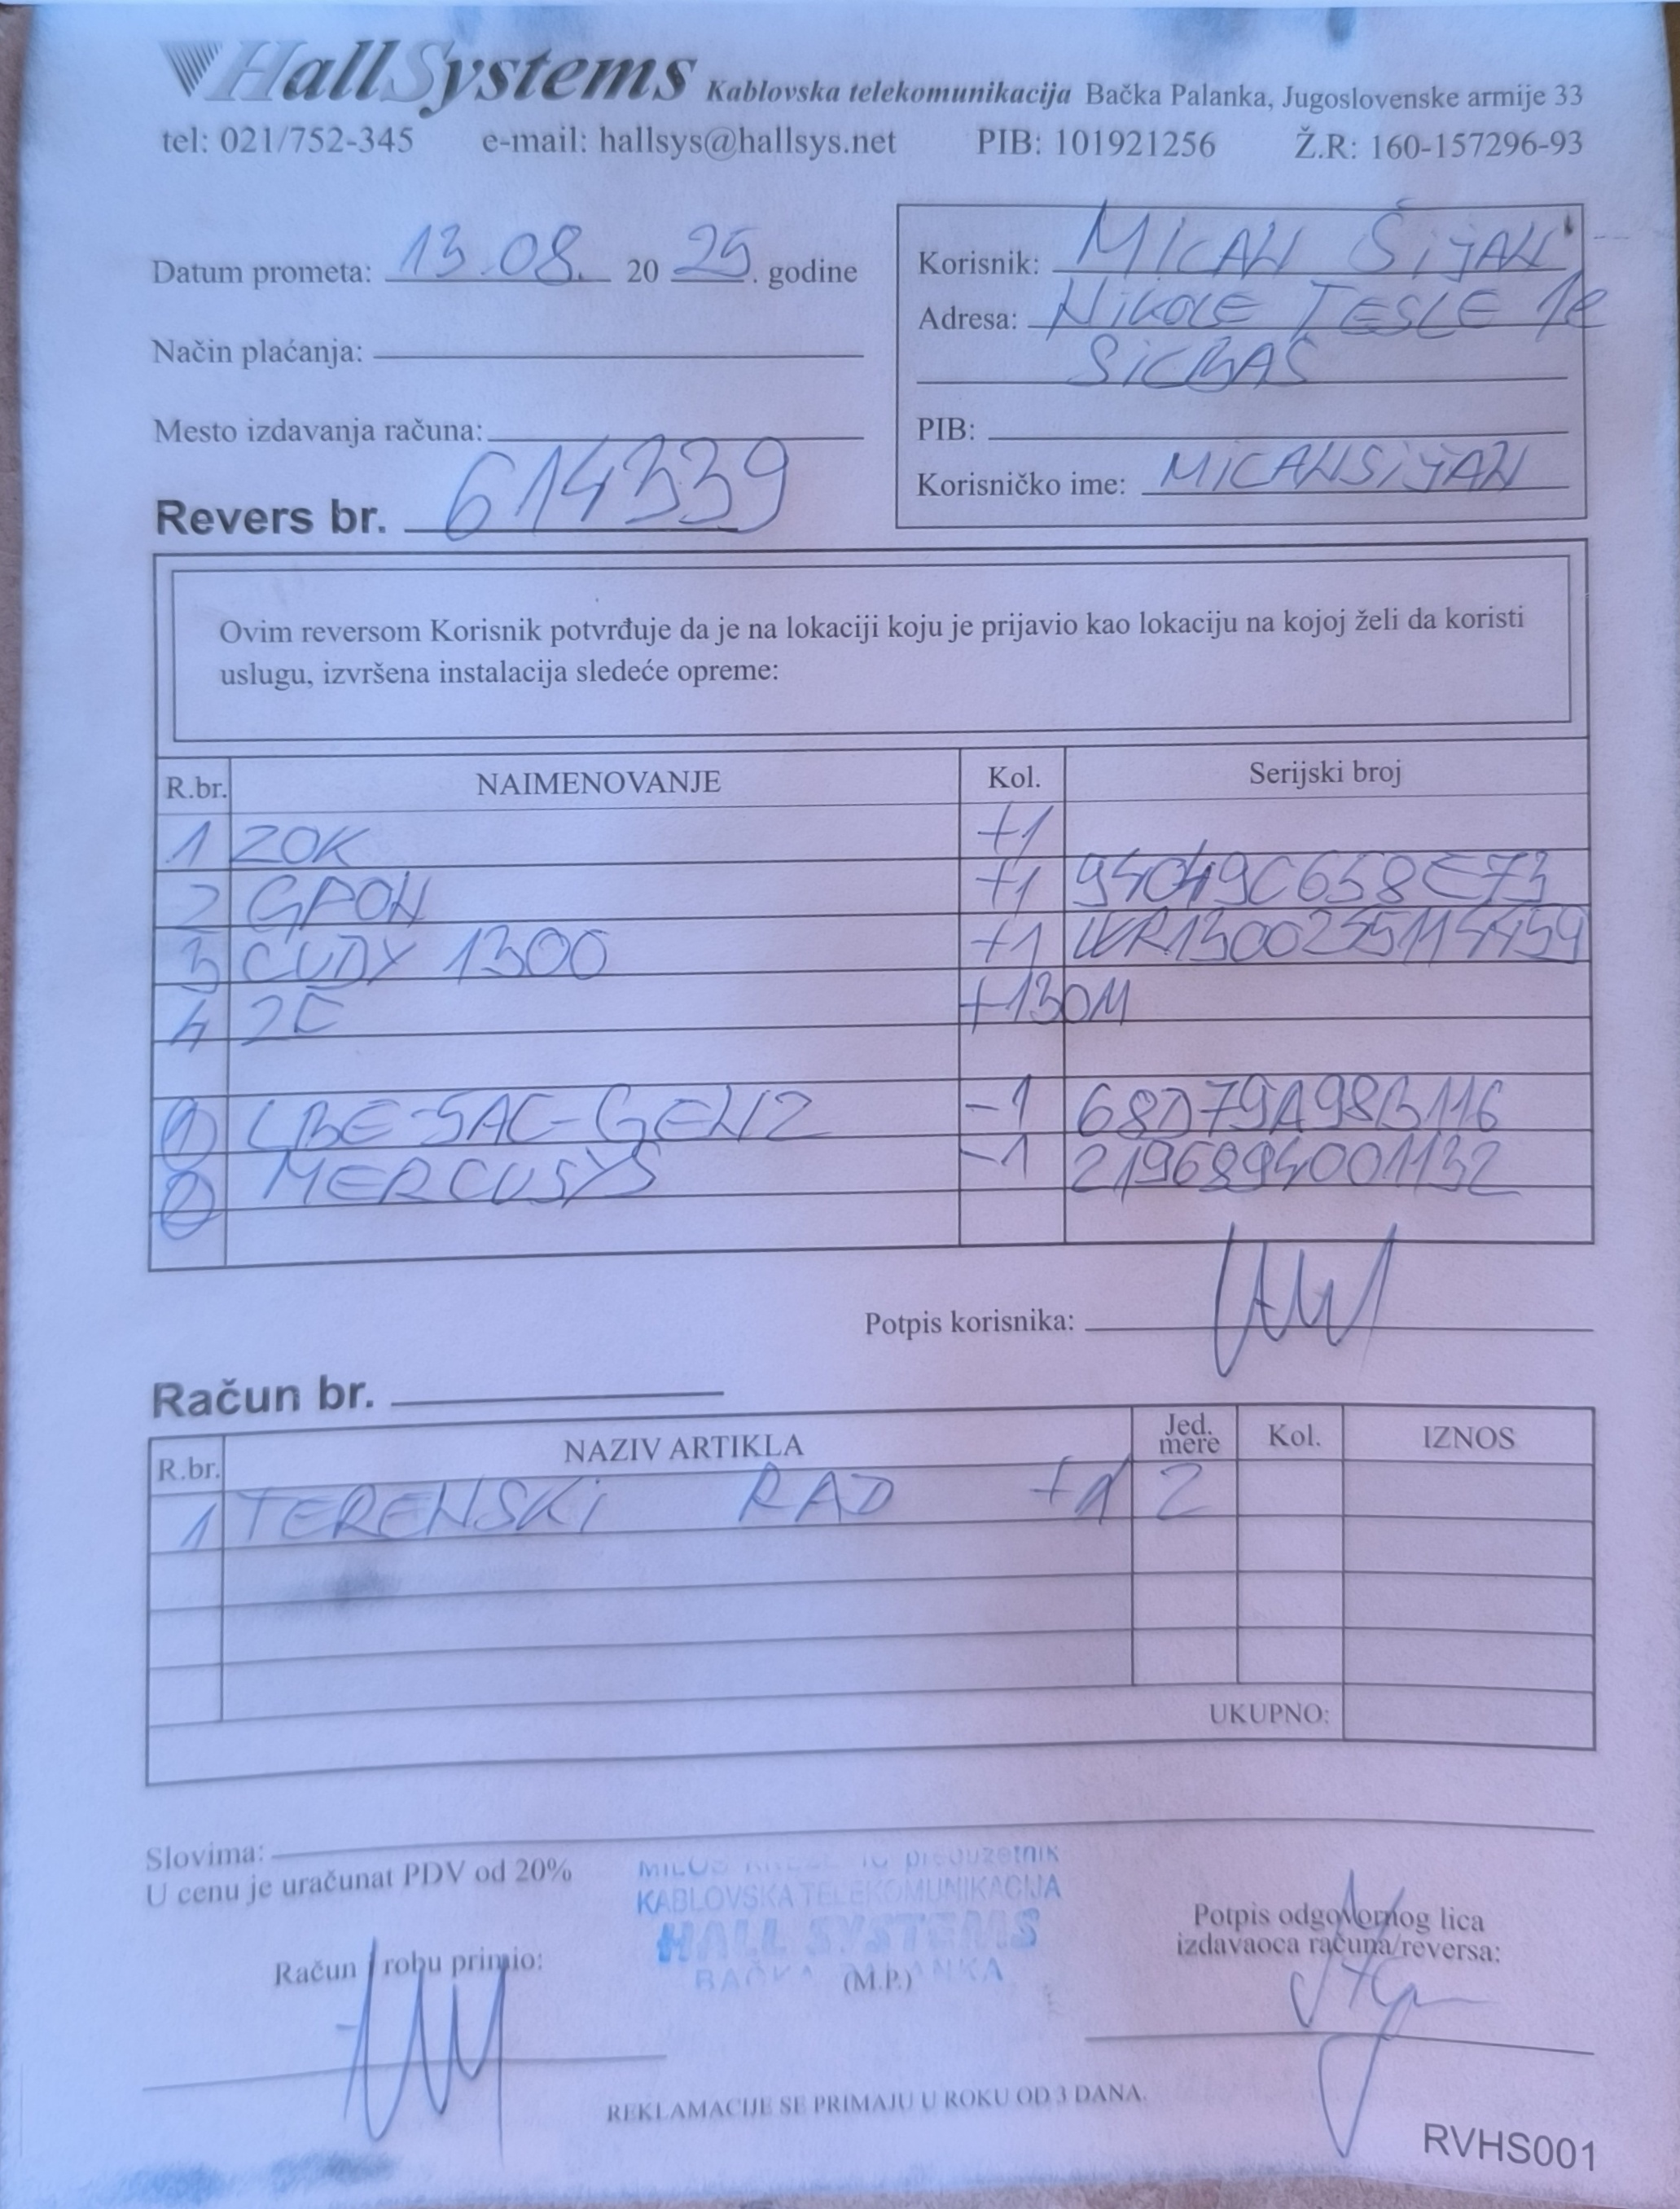 HallSystems Kablovska telekomunikacija Bačka Palanka, Jugoslovenske armije 33
tel: 021/752-345 e-mail: hallsys@hallsys.net PIB: 101921256 Ž.R: 160-157296-93
Datum prometa: 13.08. 20 25. godine
Način plaćanja:
Mesto izdavanja računa:
Revers br. 614339
Korisnik: MICAN ŠIJAN
Adresa: NIKOLE TESLE 1e
SILBAŠ
PIB:
Korisničko ime: MICANSIJAN
Ovim reversom Korisnik potvrđuje da je na lokaciji koju je prijavio kao lokaciju na kojoj želi da koristi
uslugu, izvršena instalacija sledeće opreme:
R.br. NAIMENOVANJE Kol. Serijski broj
1 ZOK +1
2 GPON +1 94049C658E73
3 CUDY 1300 +1 WR1300255114459
4 2C +130M
1 LBE-5AC-GEN2 -1 68D79A98B116
2 MERCUSYS -1 2196894001132
Potpis korisnika:
Račun br.
R.br. NAZIV ARTIKLA Jed. mere Kol. IZNOS
1 TERENSKI RAD +1 2
UKUPNO:
Slovima:
U cenu je uračunat PDV od 20%
MILOŠ preduzetnik
KABLOVSKA TELEKOMUNIKACIJA
HALL SYSTEMS
BAČKA PALANKA
(M.P.)
Račun / robu primio:
Potpis odgovornog lica
izdavaoca računa/reversa:
REKLAMACIJE SE PRIMAJU U ROKU OD 3 DANA.
RVHS001